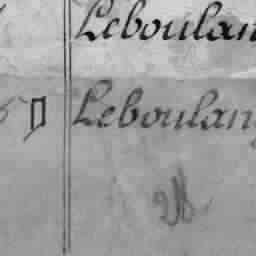 Leboulan
Leboulang